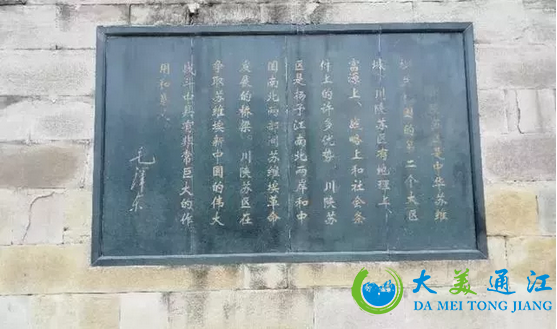 苏区是中华苏维
埃共和国的第二个大区
域，川陕苏区有地理上、
富源上、战略上和社会条
件上的许多优势，川陕苏
区是扬子江南北两岸和中
国南北两部间苏维埃革命
发展的桥梁，川陕苏区在
争取苏维埃新中国的伟大
战斗中具有非常巨大的作
用和意义。
毛泽东
大美通江
DA MEI TONG JIANG